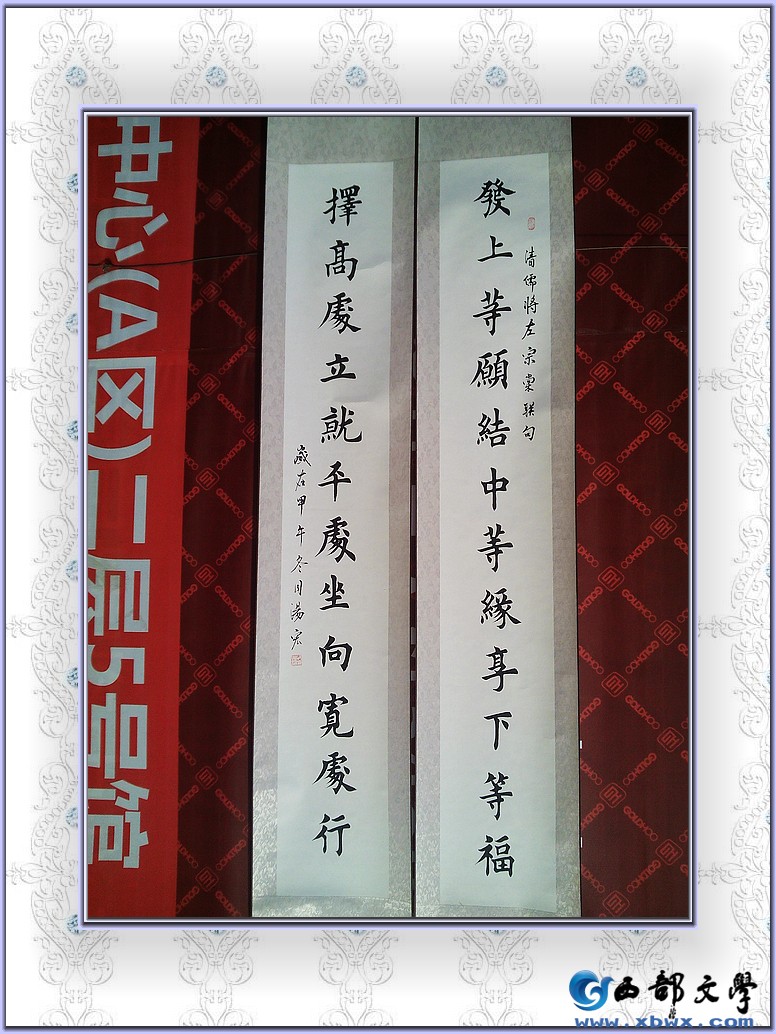 發上等願結中等緣享下等福
清儒將左宗棠联句
擇高處立就平處坐向寬處行
歲在甲午冬月湯宏
中心(A区)二层5号馆
GOLDHOO
西部文學
www.xbwx.com